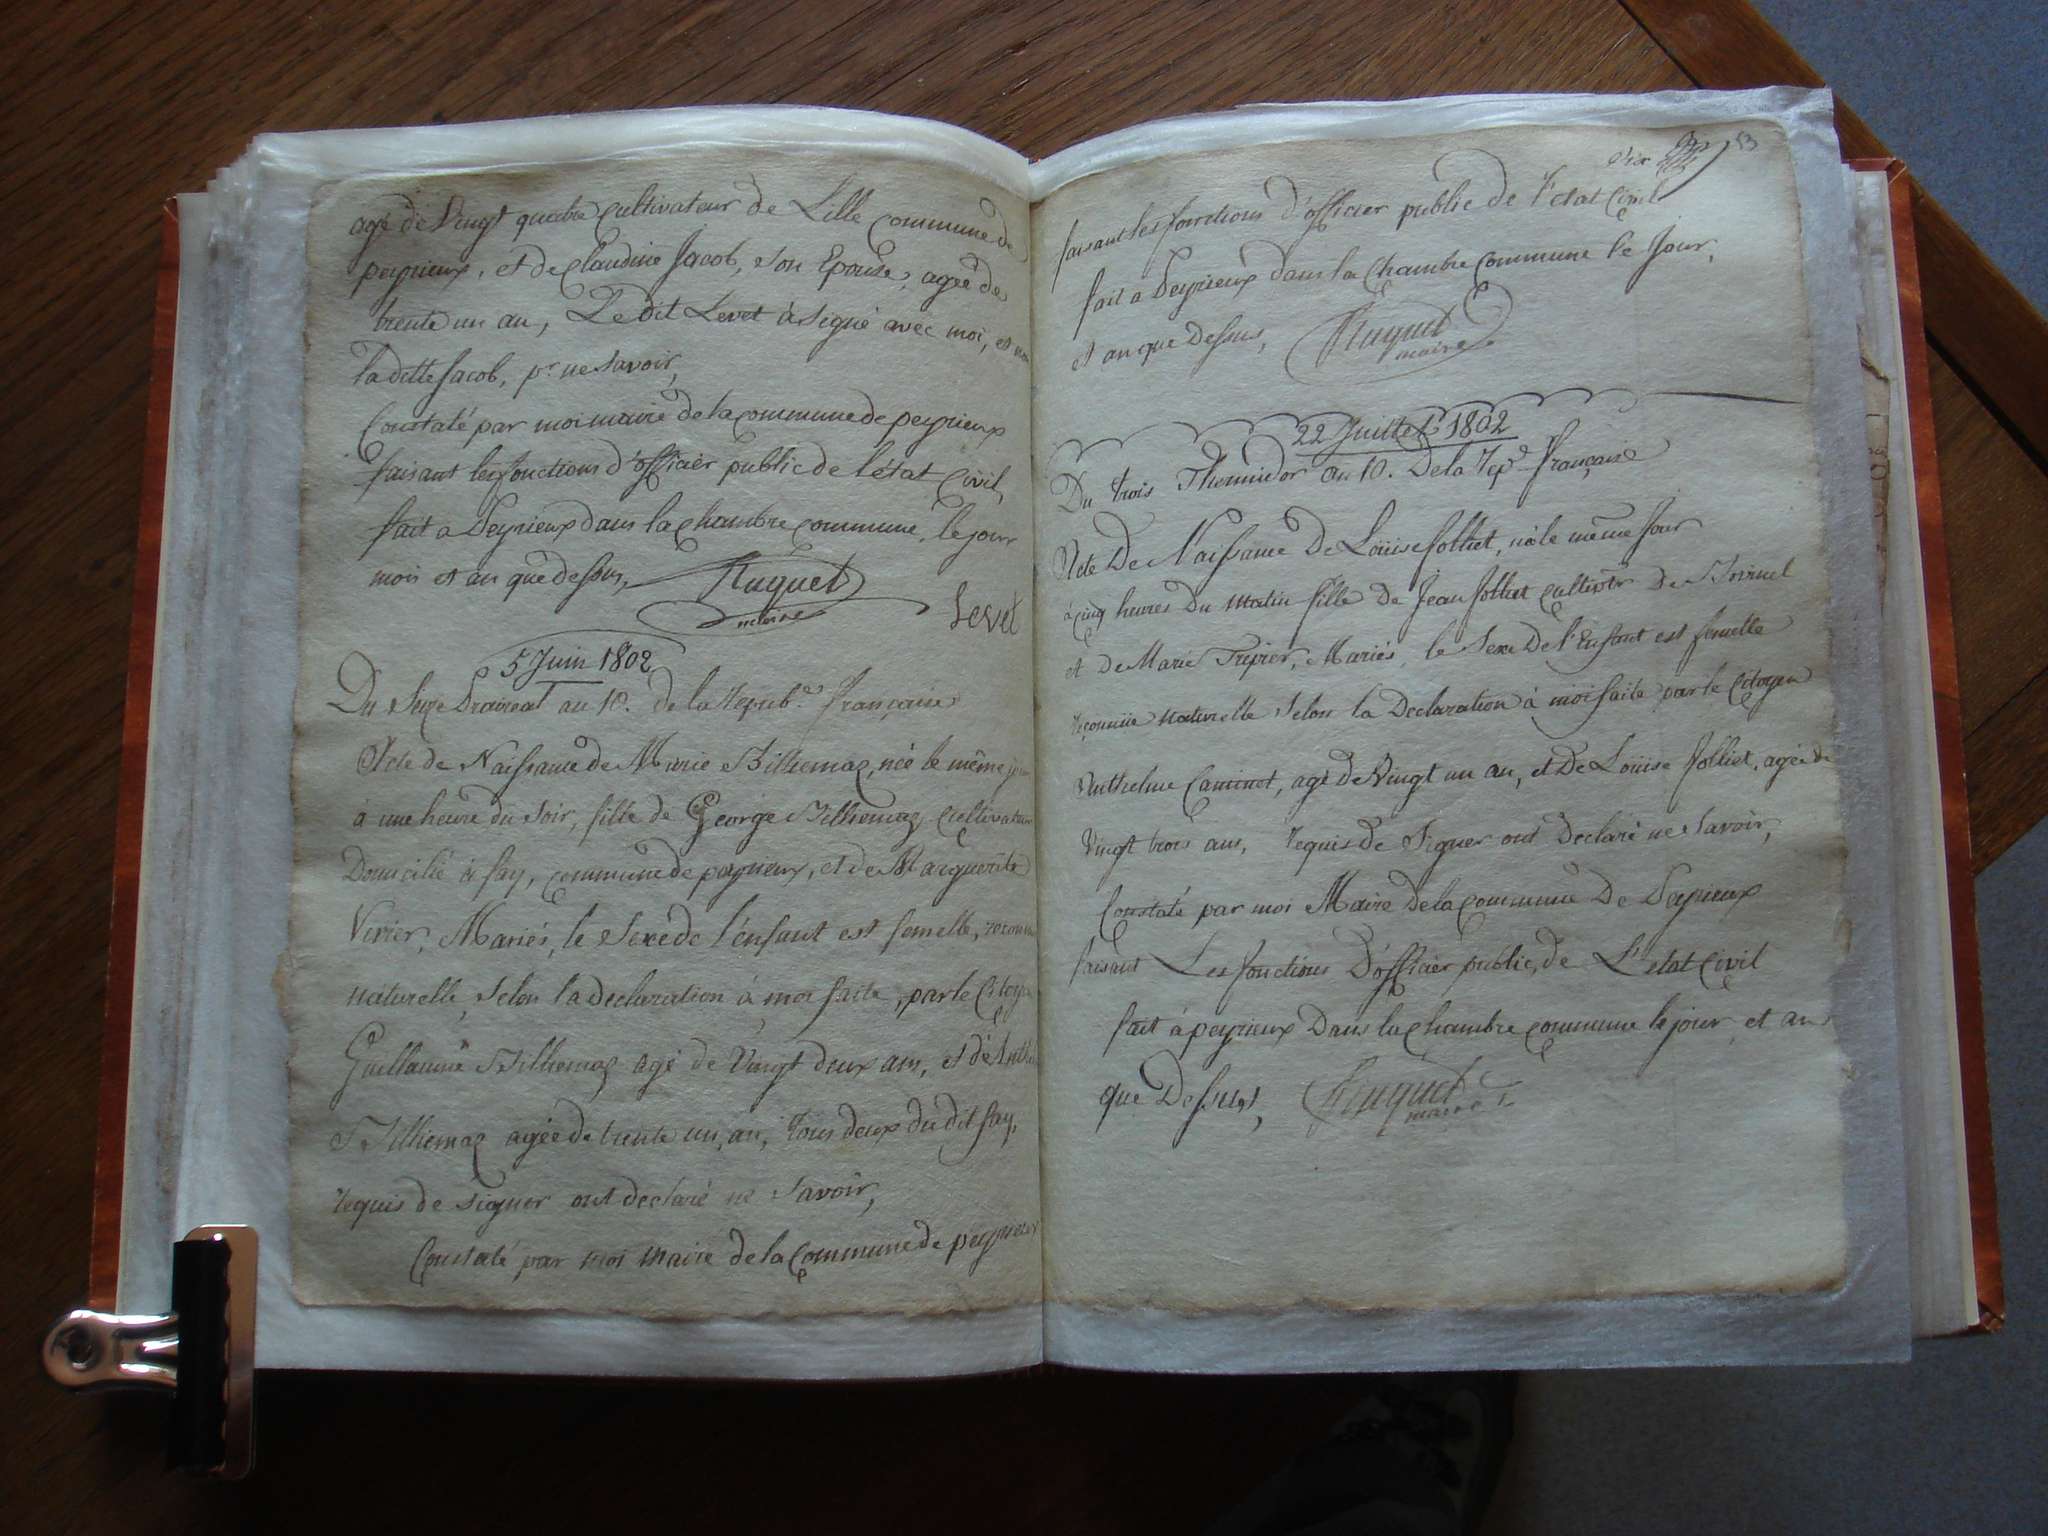 agé de Vingt quatre cultivateur de Lille commune de
peyrieux, et de Claudine Jacob, son Epouse, agée de
trente un an, Le dit Levet à signé avec moi, et non
la ditte Jacob, pr ne savoir,
Constaté par moi maire de la commune de peyrieux
faisant les fonctions d'officier public de l'état Civil,
fait a Peyrieux dans la chambre commune, le jour
mois et an que dessus, Ruquet
maire Levet
5 Juin 1802
Du Seize Praireal an 10. de la Repub.e française
Acte de Naissance de Marie Billiemaz, née le même jour
à une heure du soir, fille de George Billiemaz, cultivateur
Domicilié à fay, commune de peyrieux, et de Marguerite
Virier, Mariés, le Sexe de l'enfant est femelle,
naturelle, selon la declaration à moi faite, par le Citoyen
Guillaume Billiemaz agé de Vingt deux ans, et d'
Billiemaz agée de trente un an, tous deux du dit fay,
requis de signer ont declaré ne savoir,
Constaté par moi maire de la Commune de peyrieux
dix 53
faisant les fonctions d'officier public de l'état Civil
fait a Peyrieux dans la Chambre Commune le Jour,
et an que Dessus, Ruquet
maire
22 Juillet 1802
Du trois Thermidor an 10. De la Rep.e française
Acte De Naissance De Louise Jolliet, née le même Jour
à cinq heures Du Matin fille De Jean Jolliet cultivatr De
et De Marie Trepier, Mariés, le Sexe De l'Enfant est femelle
reconnue naturelle selon la Declaration à moi faite par le Citoyen
Anthelme Caminet, agé De Vingt un an, et De Louise Jolliet, agée de
Vingt trois ans, requis de Signer ont Declaré ne Savoir,
Constaté par moi Maire De la commune De Peyrieux
faisant Les fonctions D'officier public, de L'etat Civil
fait à peyrieux Dans la chambre commune le jour et an
que Dessus, Ruquet
maire